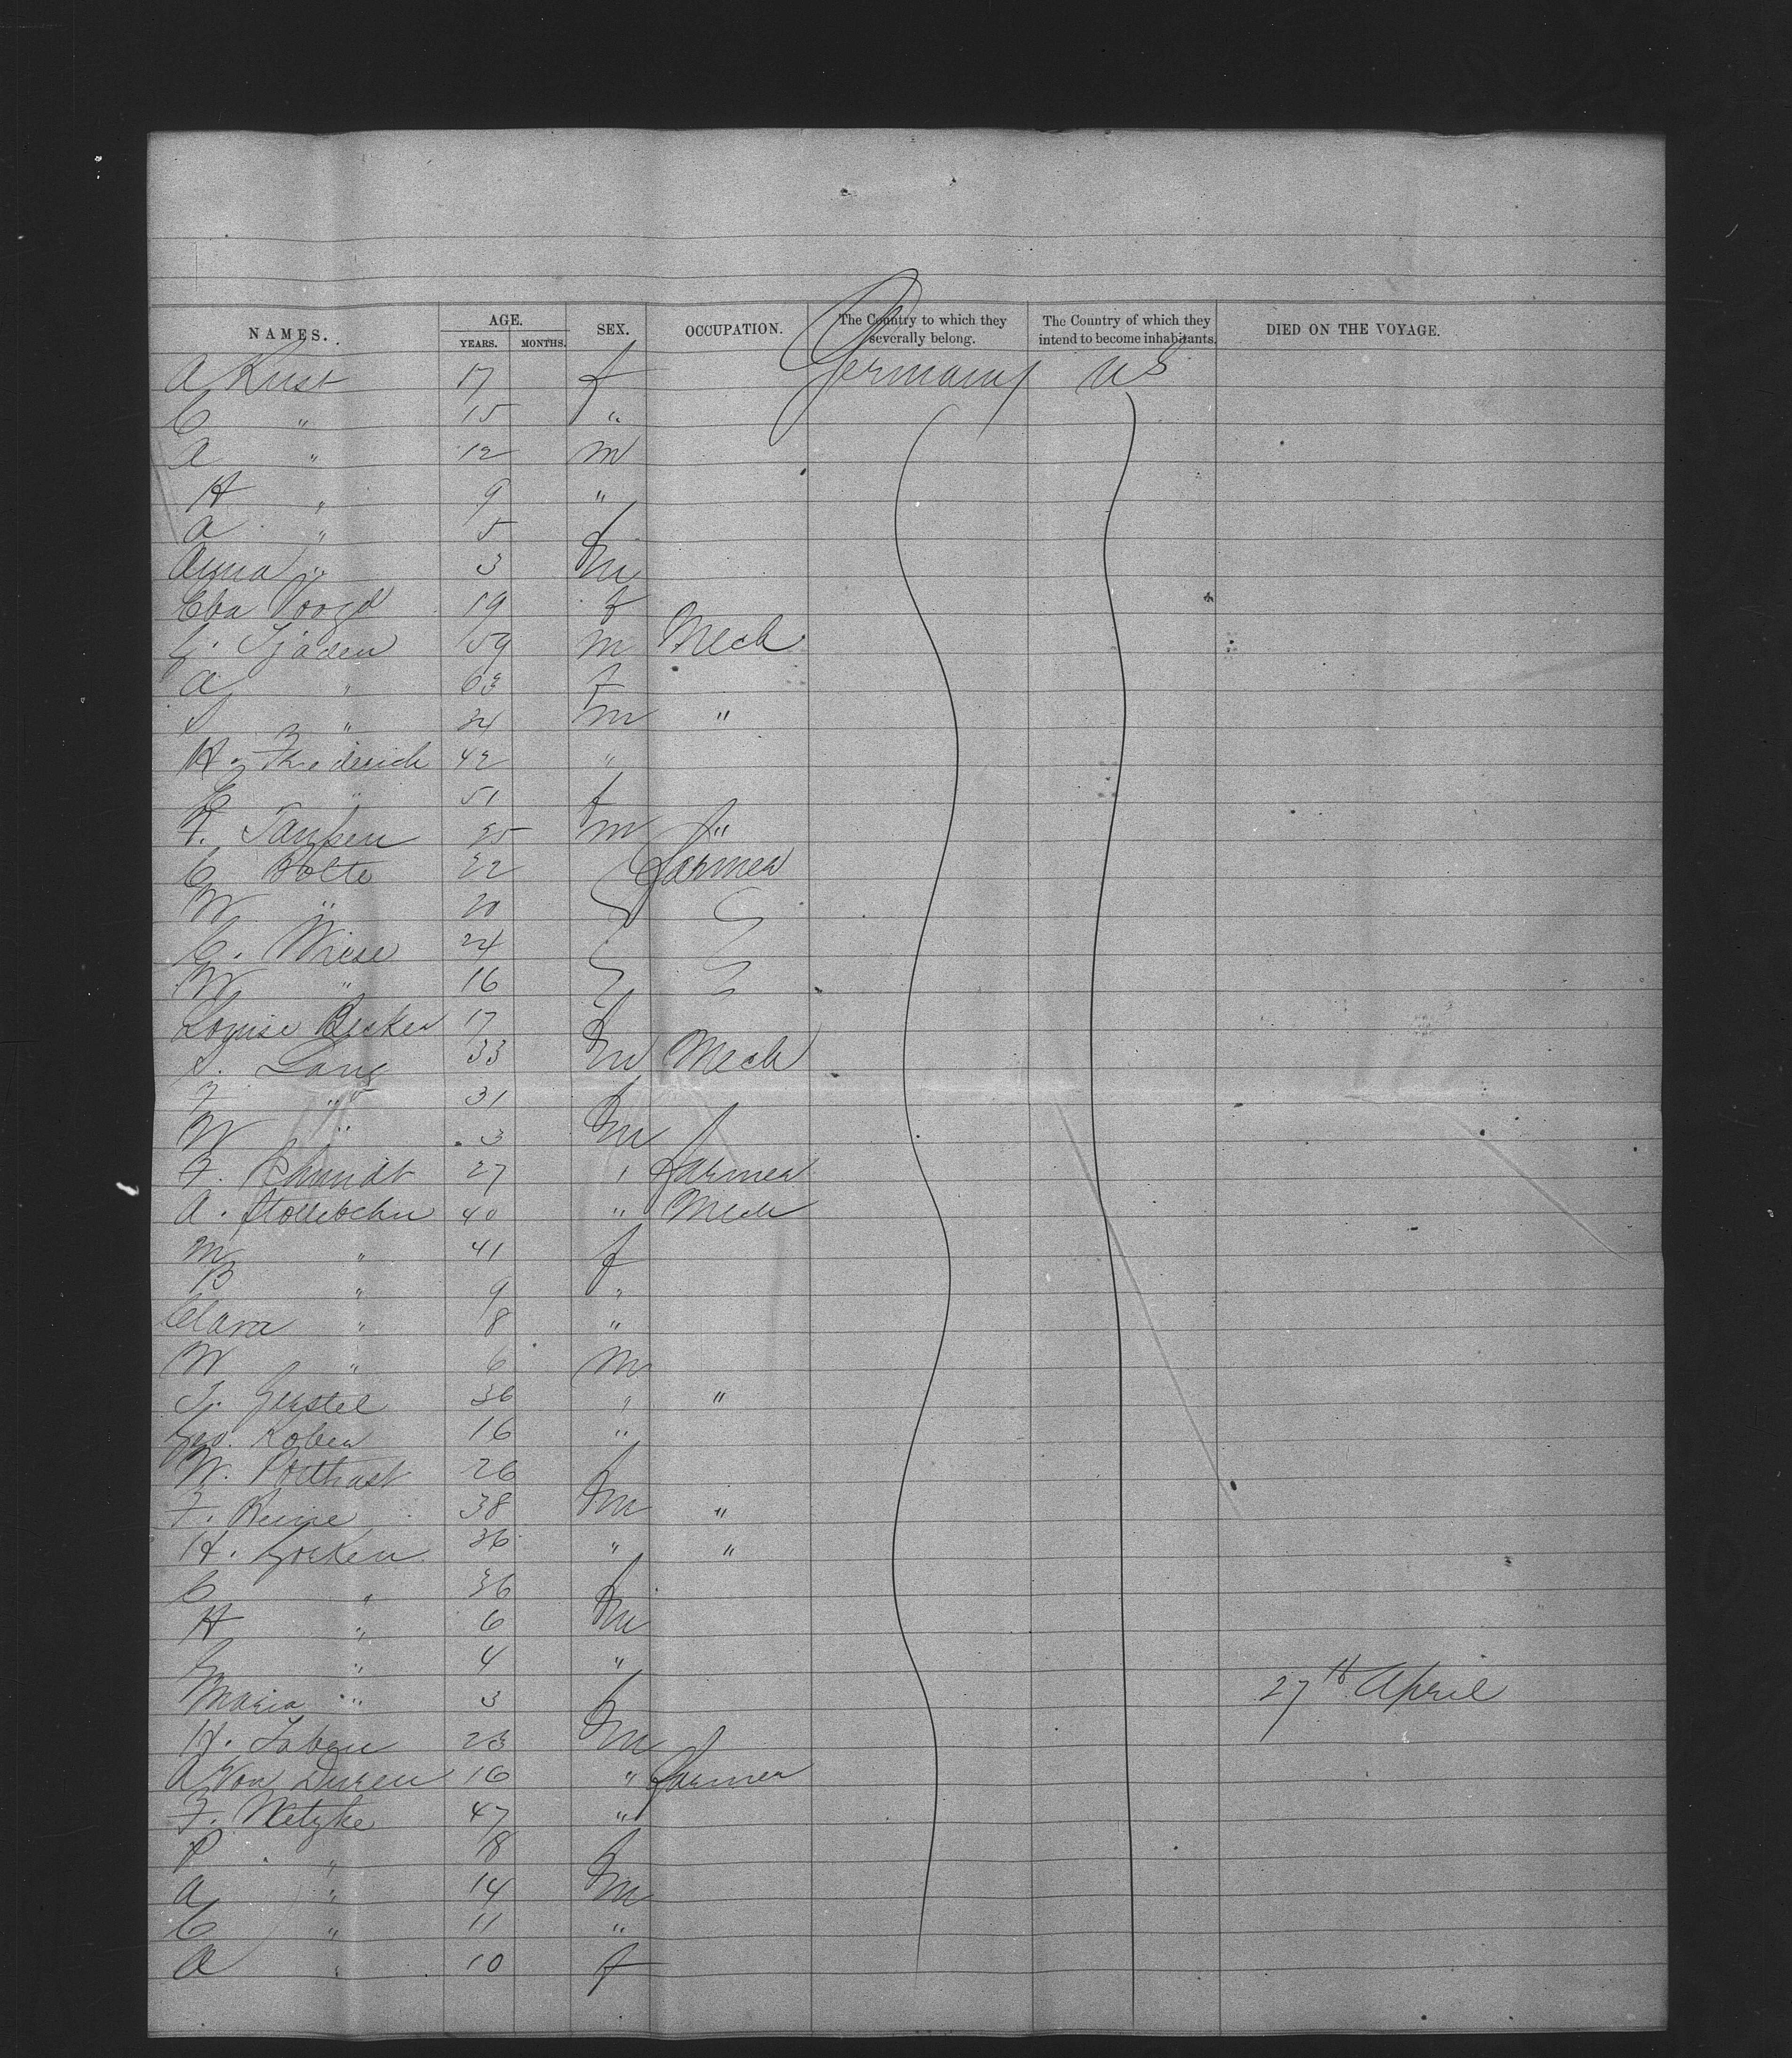 NAMES. AGE. SEX. OCCUPATION. The Country to which they severally belong. The Country of which they intend to become inhabitants. DIED ON THE VOYAGE.
YEARS. MONTHS.
A Kust 17 f Germany US
C " 15 "
A " 12 m
H " 9 "
A " 5 f
Anna " 3 m
Eba Voogd 19 f
G. Tjaden 59 m Mech
A " 63 f
S " 24 m "
H. Friederich 42 "
C " 51 f
F. Janssen 25 m "
C Bolte 22 Farmer
W " 20
C. Wiese 24
W " 16
Louise Becker 17 f
S. Lang 33 m Mech
F " 31 f
W " 3 m
F. Schmidt 27 " Farmer
A. 40 " Mech
M " 41 f
B " 9 "
Clara " 8 "
W " 6 m
J. Gerstel 36 " "
Geo. Kober 16 "
W. Potthast 26 f
F. Reine 38 m "
H. Gorken 36 " "
C " 36 f
H " 6 m
G " 4 "
Maria " 3 f 27th April
H. Taben 23 m
A Von Duren 16 " Farmer
F. Metzke 47 "
P " 18 f
A " 14 m
C " 11 "
A " 10 f